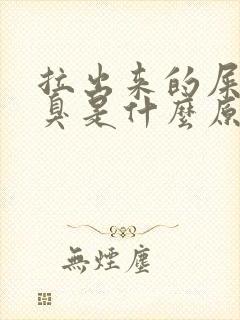 拉出来的屎
臭是什麼原
無煙塵